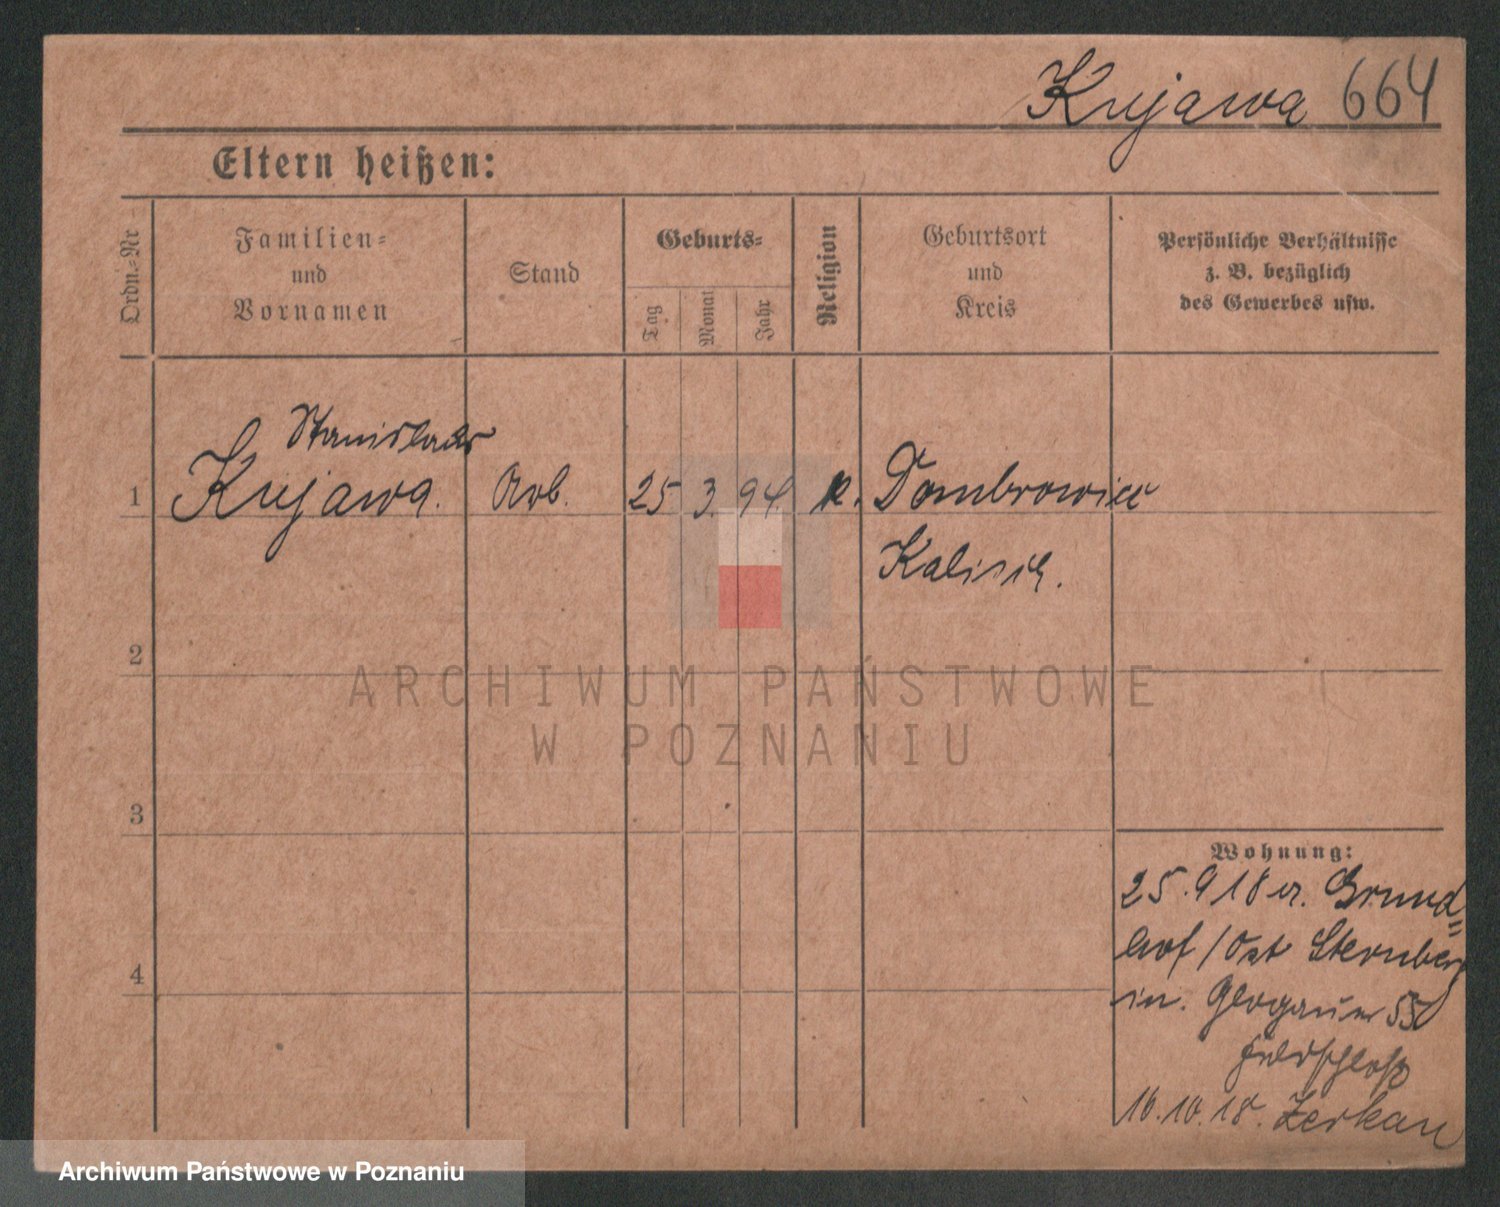 Kujawa 664
Eltern heißen:
Ordn.-Nr
Familien-
und
Vornamen
Stand
Geburts-
Tag
Monat
Jahr
Religion
Geburtsort
und
Kreis
Persönliche Verhältnisse
z. B. bezüglich
des Gewerbes usw.
Stanislaus
1 Kujawa. Arb. 25 3. 94. k. Dombrowice
Kalisch.
2
3
4
Wohnung:
25.9 18 v. Grund=
hof / Ost Sternberg
in. Glogauer 55
Feldschloß
10.10.18. Zerkau
ARCHIWUM PAŃSTWOWE
W POZNANIU
Archiwum Państwowe w Poznaniu